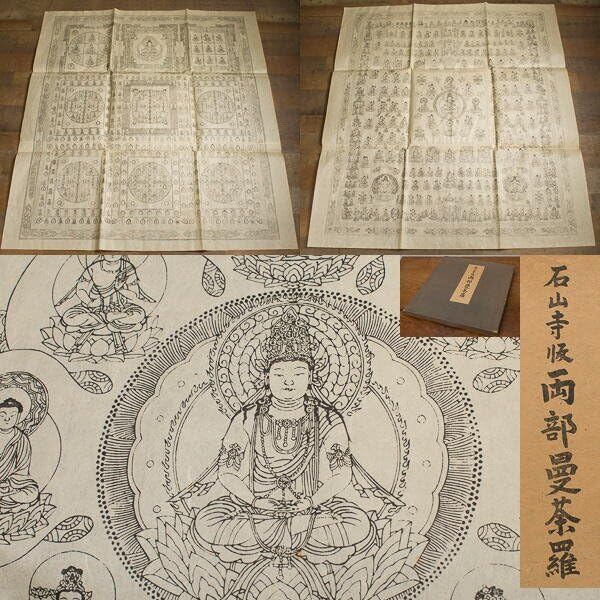 石山寺版 両部曼荼羅